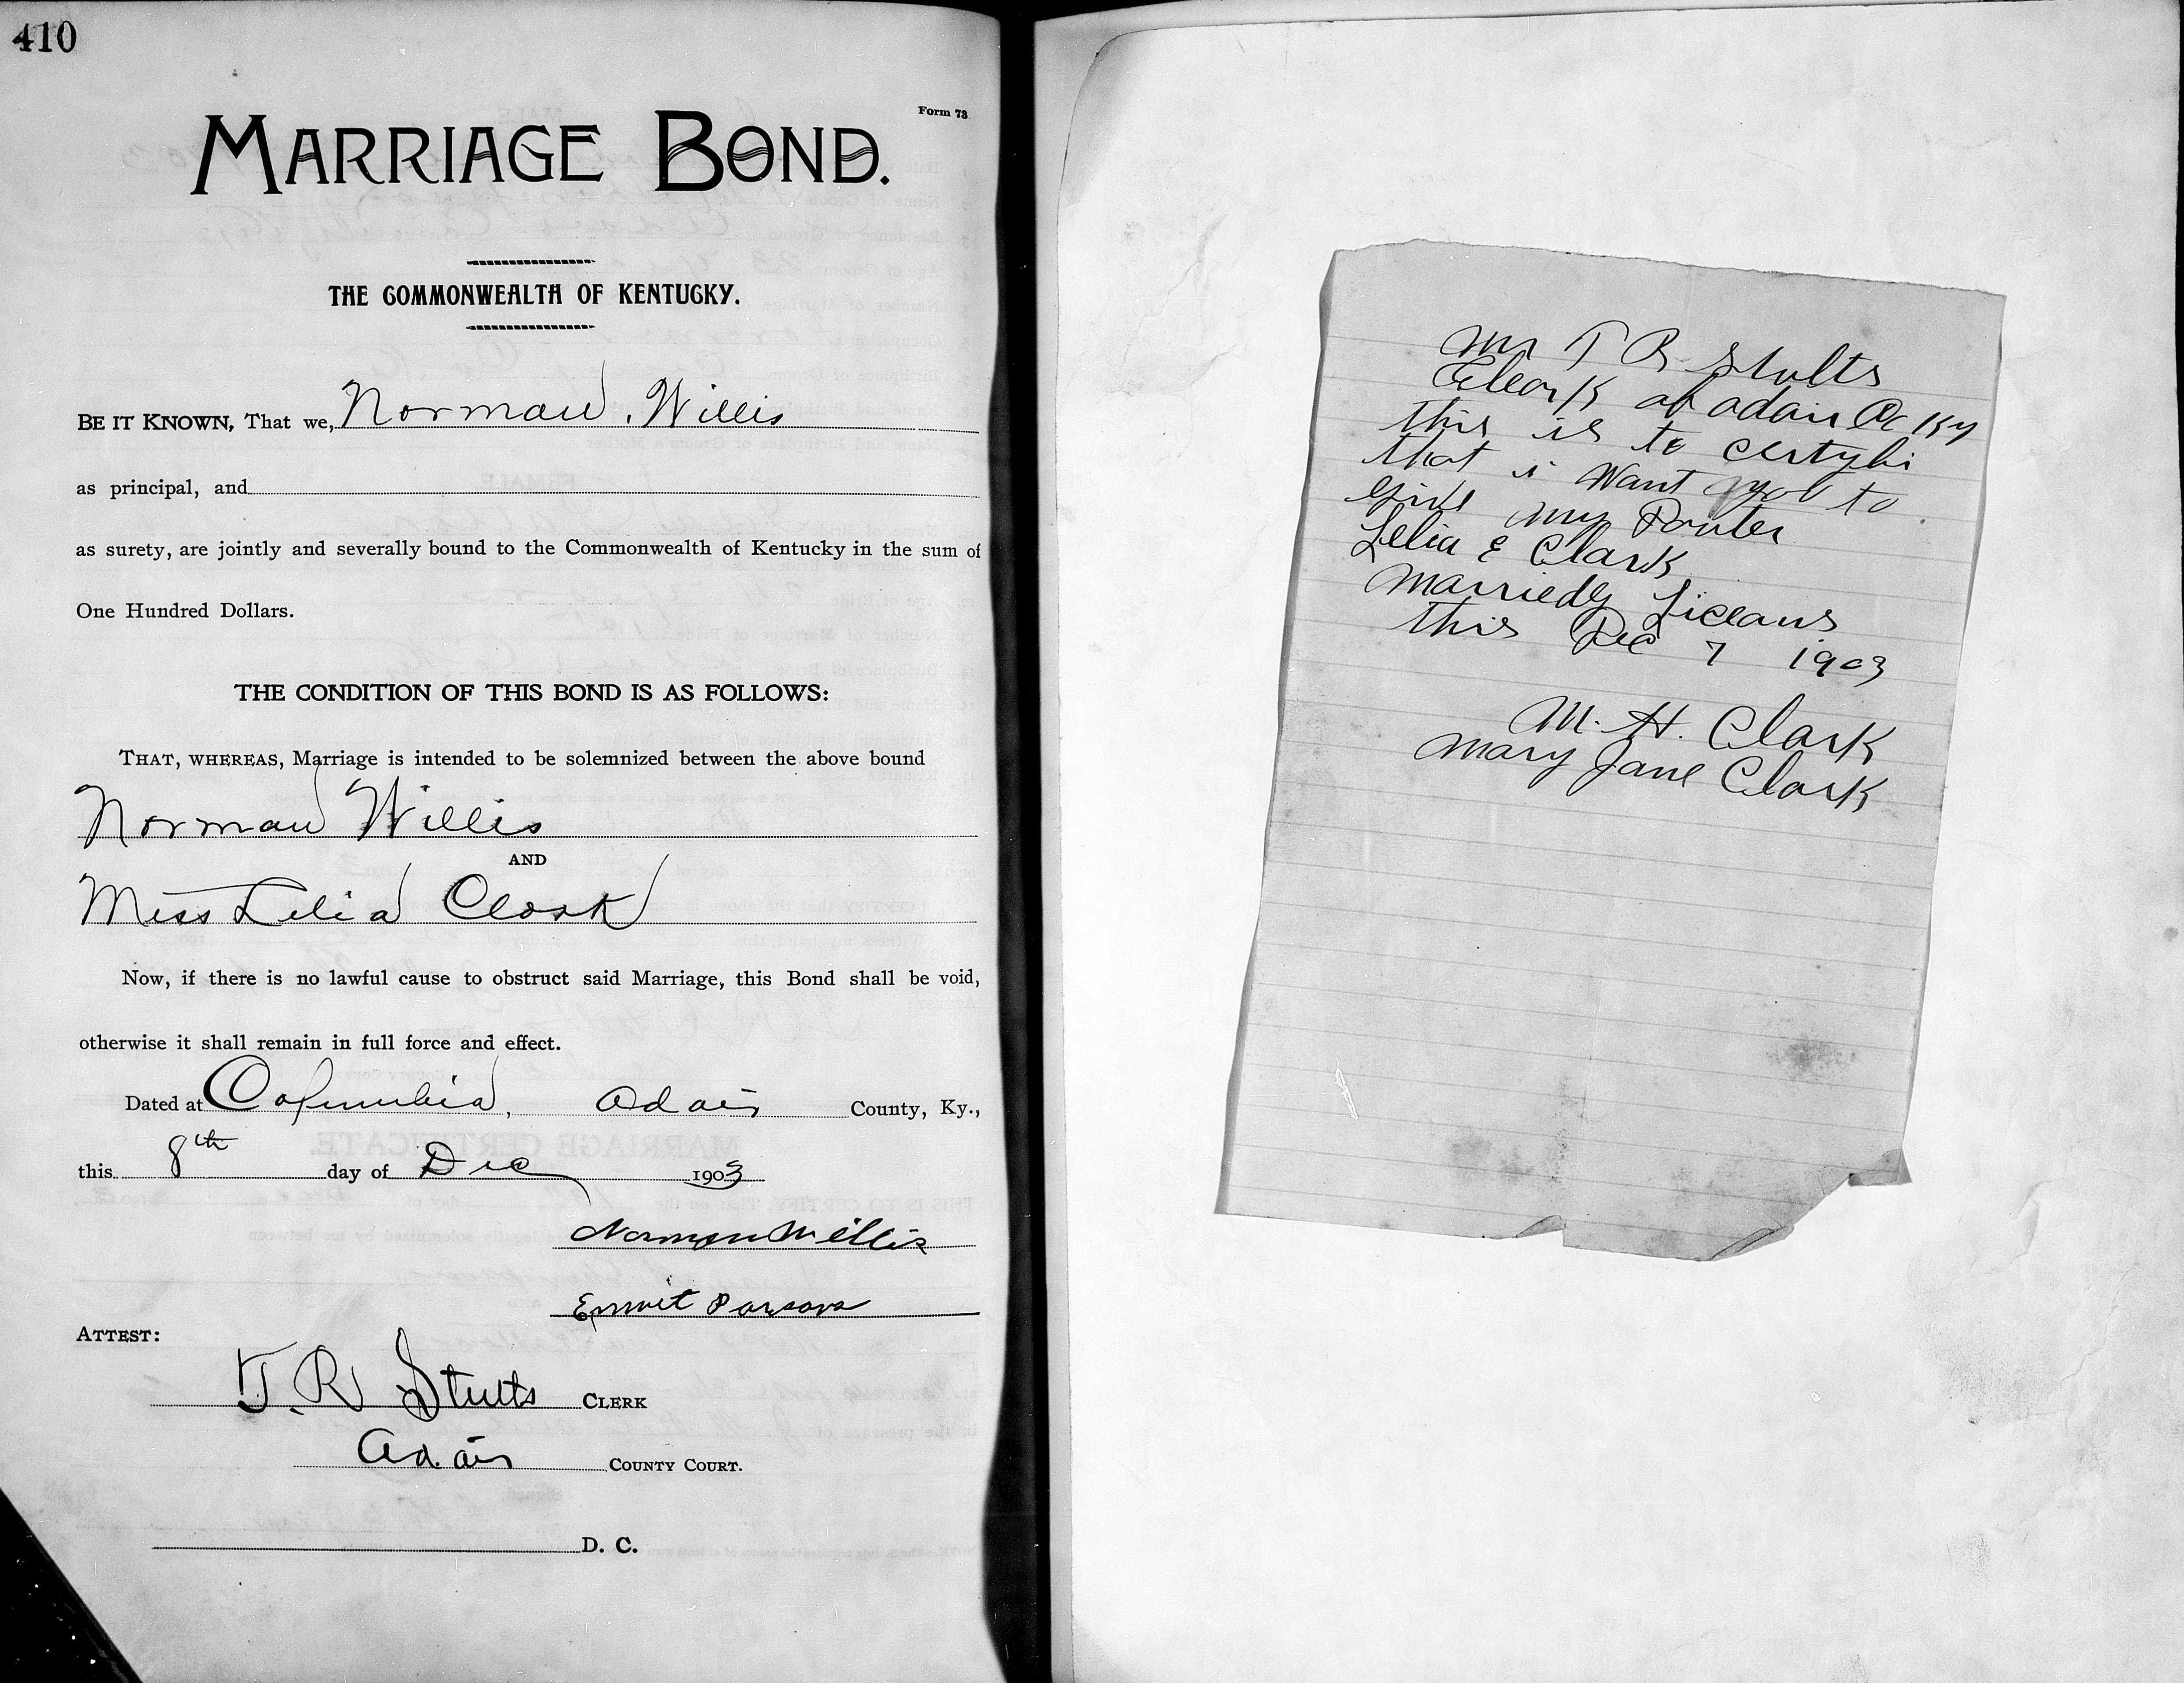 410
Form 73
MARRIAGE BOND.
THE COMMONWEALTH OF KENTUCKY.
BE IT KNOWN, That we, Norman Willis
as principal, and
as surety, are jointly and severally bound to the Commonwealth of Kentucky in the sum of
One Hundred Dollars.
THE CONDITION OF THIS BOND IS AS FOLLOWS:
THAT, WHEREAS, Marriage is intended to be solemnized between the above bound
Norman Willis
AND
Miss Lelia Clark
Now, if there is no lawful cause to obstruct said Marriage, this Bond shall be void,
otherwise it shall remain in full force and effect.
Dated at Columbia, Adair County, Ky.,
this 8th day of Dec 1903
Norman Willis
Emmit Parsons
ATTEST:
T. R Stults CLERK
Adair COUNTY COURT.
D. C.
Mr T R Stults
Cleark of adair Co Ky
this is to certyfi
that i Want you to
give my
Lelia E Clark
Marriedg Liceans
this Dec 7 1903
M. H. Clark
Mary Jane Clark